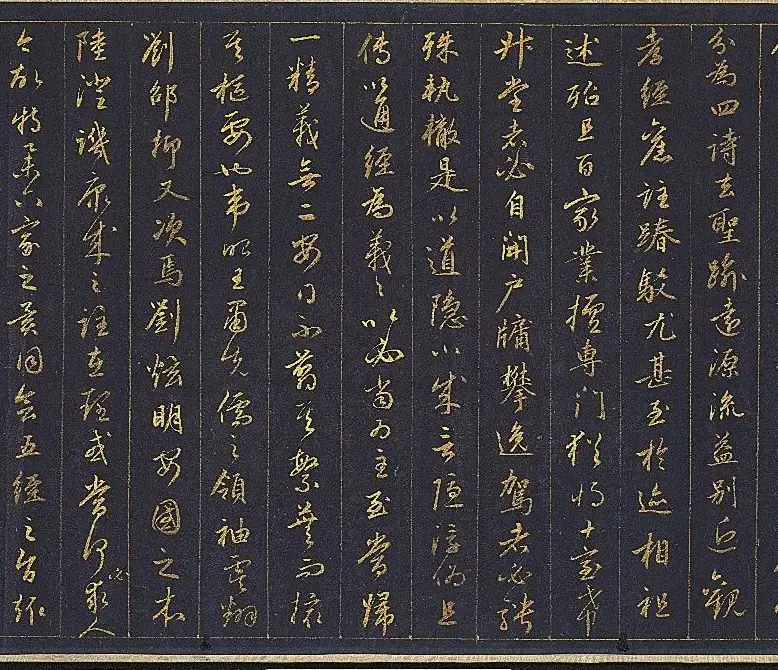 分為四詩去聖踰遠源流益別近觀
孝經舊註踳駮尤甚至於迹相祖
述殆且百家業擅專門猶將十室希
升堂者必自開户牖攀逸駕者必騁
殊軌轍是以道隱小成言隱浮偽且
傳以通經為義〻以必當為主至當歸
一精義無二安得不翦其繁蕪而撮
其樞要也韋昭王肅先儒之領袖虞翻
劉邵抑又次焉劉炫明安國之本
陸澄譏康成之註在理或當何必求人
今故特舉六家之異同會五經之旨趣